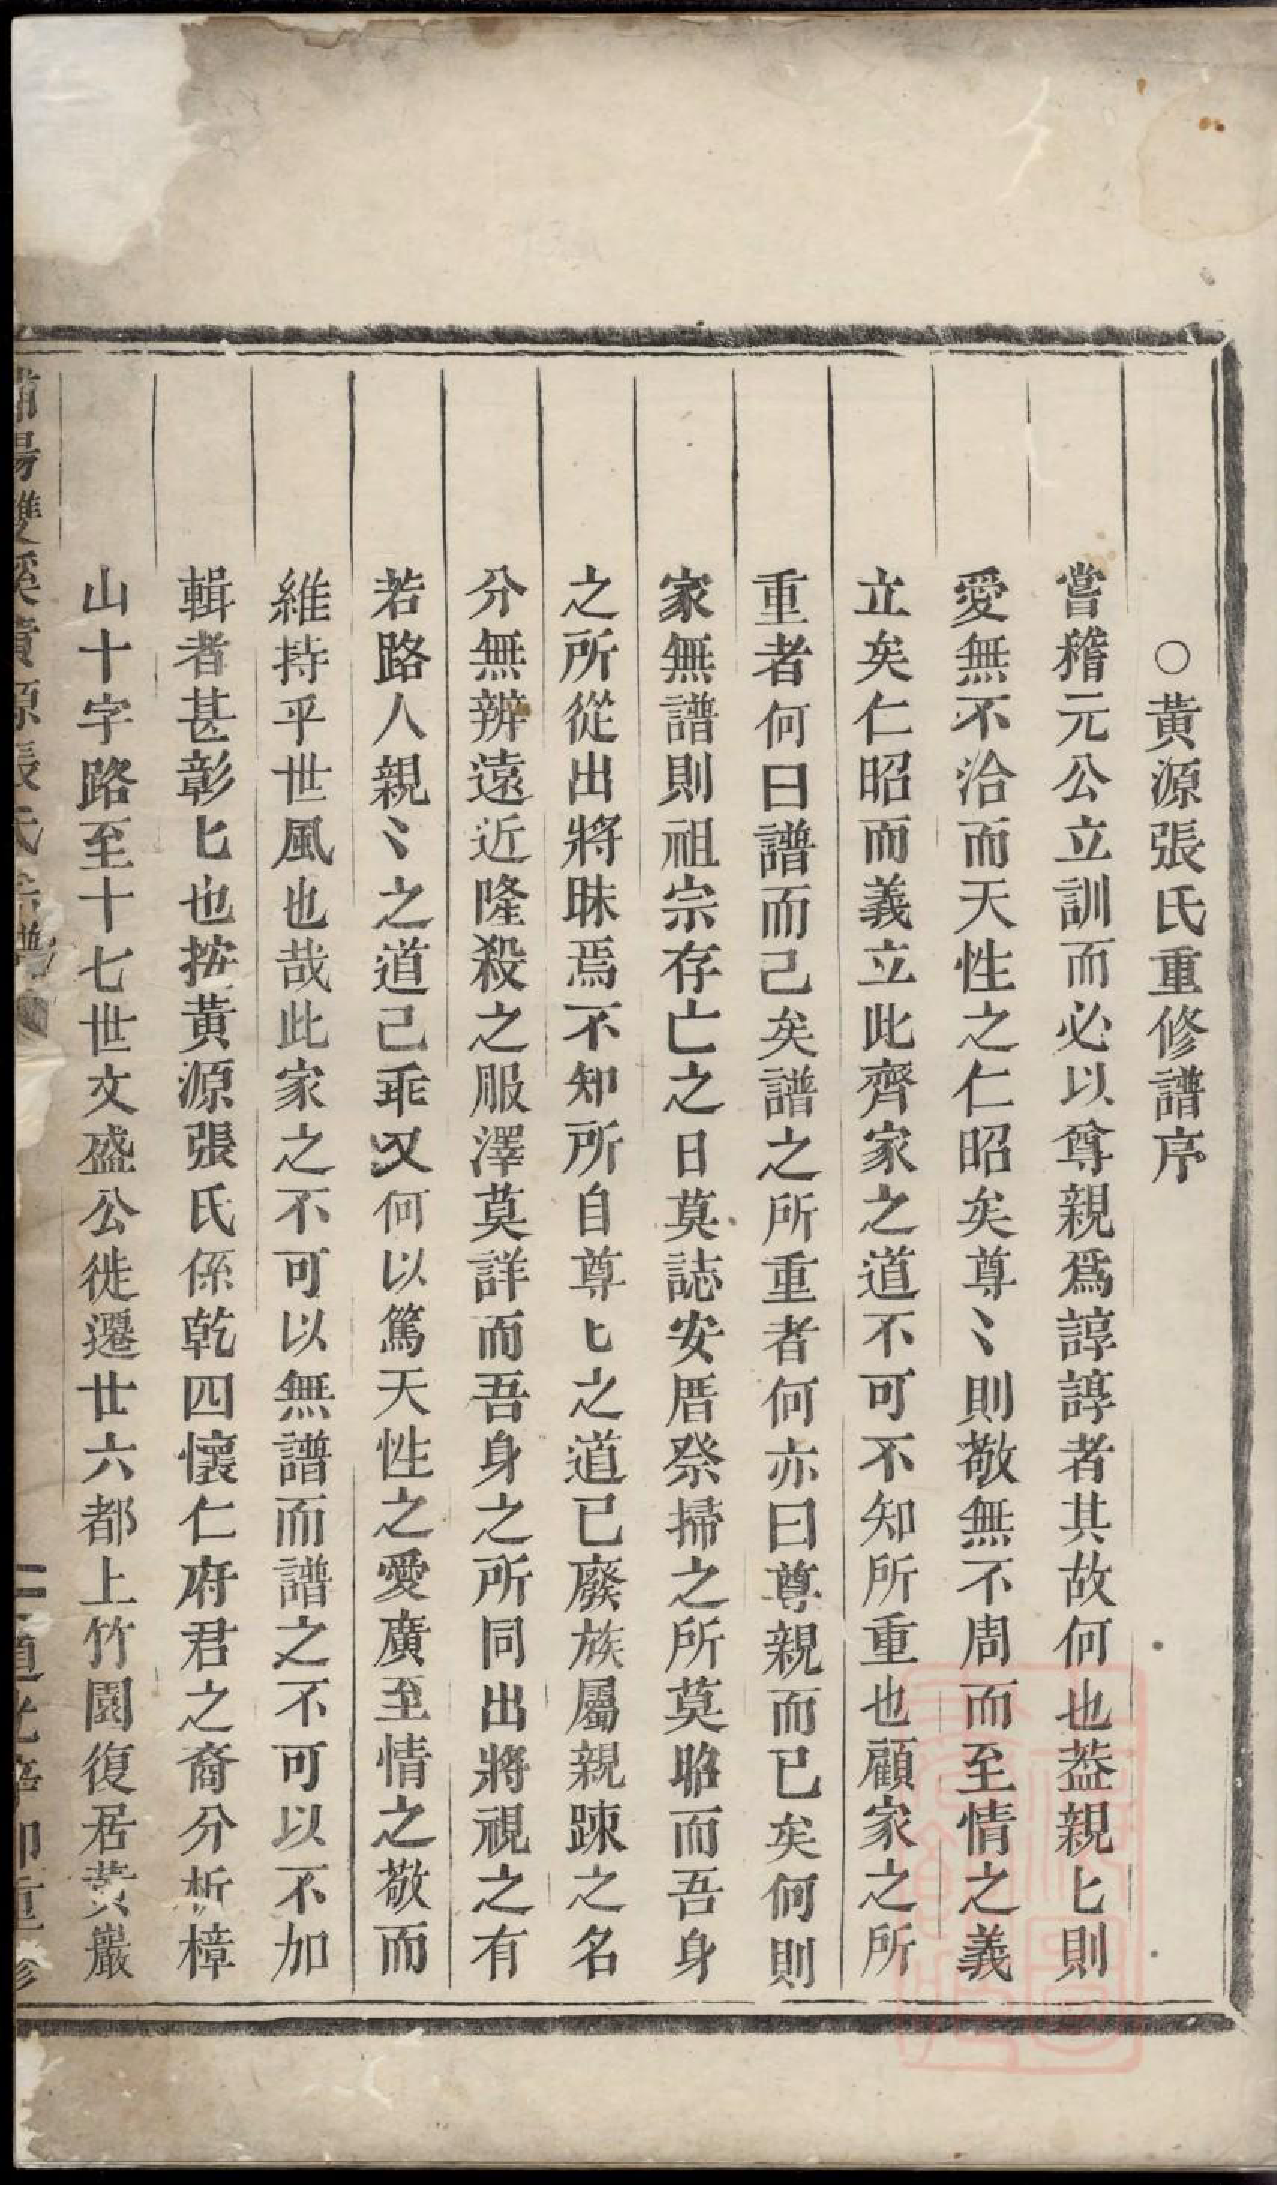 ○黃源張氏重修譜序
嘗稽元公立訓而必以尊親爲諄諄者其故何也葢親匕則
愛無不洽而天性之仁昭矣尊〻則敬無不周而至情之義
立矣仁昭而義立此齊家之道不可不知所重也顧家之所
重者何曰譜而己矣譜之所重者何亦曰尊親而已矣何則
家無譜則祖宗存亡之日莫誌安厝祭掃之所莫昭而吾身
之所從出將昧焉不知所自尊匕之道已廢族屬親踈之名
分無辨遠近隆殺之服澤莫詳而吾身之所同出將視之有
若路人親〻之道己乖又何以篤天性之愛廣至情之敬而
維持乎世風也哉此家之不可以無譜而譜之不可以不加
輯者甚彰匕也按黃源張氏係乾四懷仁府君之裔分析樟
山十字路至十七世文盛公徙遷廿六都上竹園復居黃巖
陽雙溪黃源張氏宗譜
道光辛卯重修